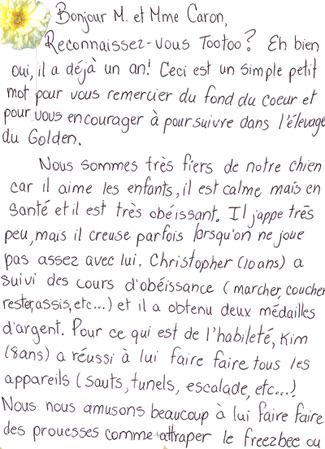 Bonjour M. et Mme Caron,
Reconnaissez-vous Tootoo? Eh bien
oui, il a déjà un an! Ceci est un simple petit
mot pour vous remercier du fond du coeur et
pour vous encourager à poursuivre dans l'élevage
du Golden.
Nous sommes très fiers de notre chien
car il aime les enfants, il est calme mais en
santé et il est très obéissant. Il jappe très
peu, mais il creuse parfois lorsqu'on ne joue
pas assez avec lui. Christopher (10 ans) a
suivi des cours d'obéissance (marcher, coucher
rester, assis, etc...) et il a obtenu deux médailles
d'argent. Pour ce qui est de l'habileté, Kim
(8 ans) a réussi à lui faire faire tous les
appareils (sauts, tunels, escalade, etc...)
Nous nous amusons beaucoup à lui faire faire
des prouesses comme attraper le freezbee ou